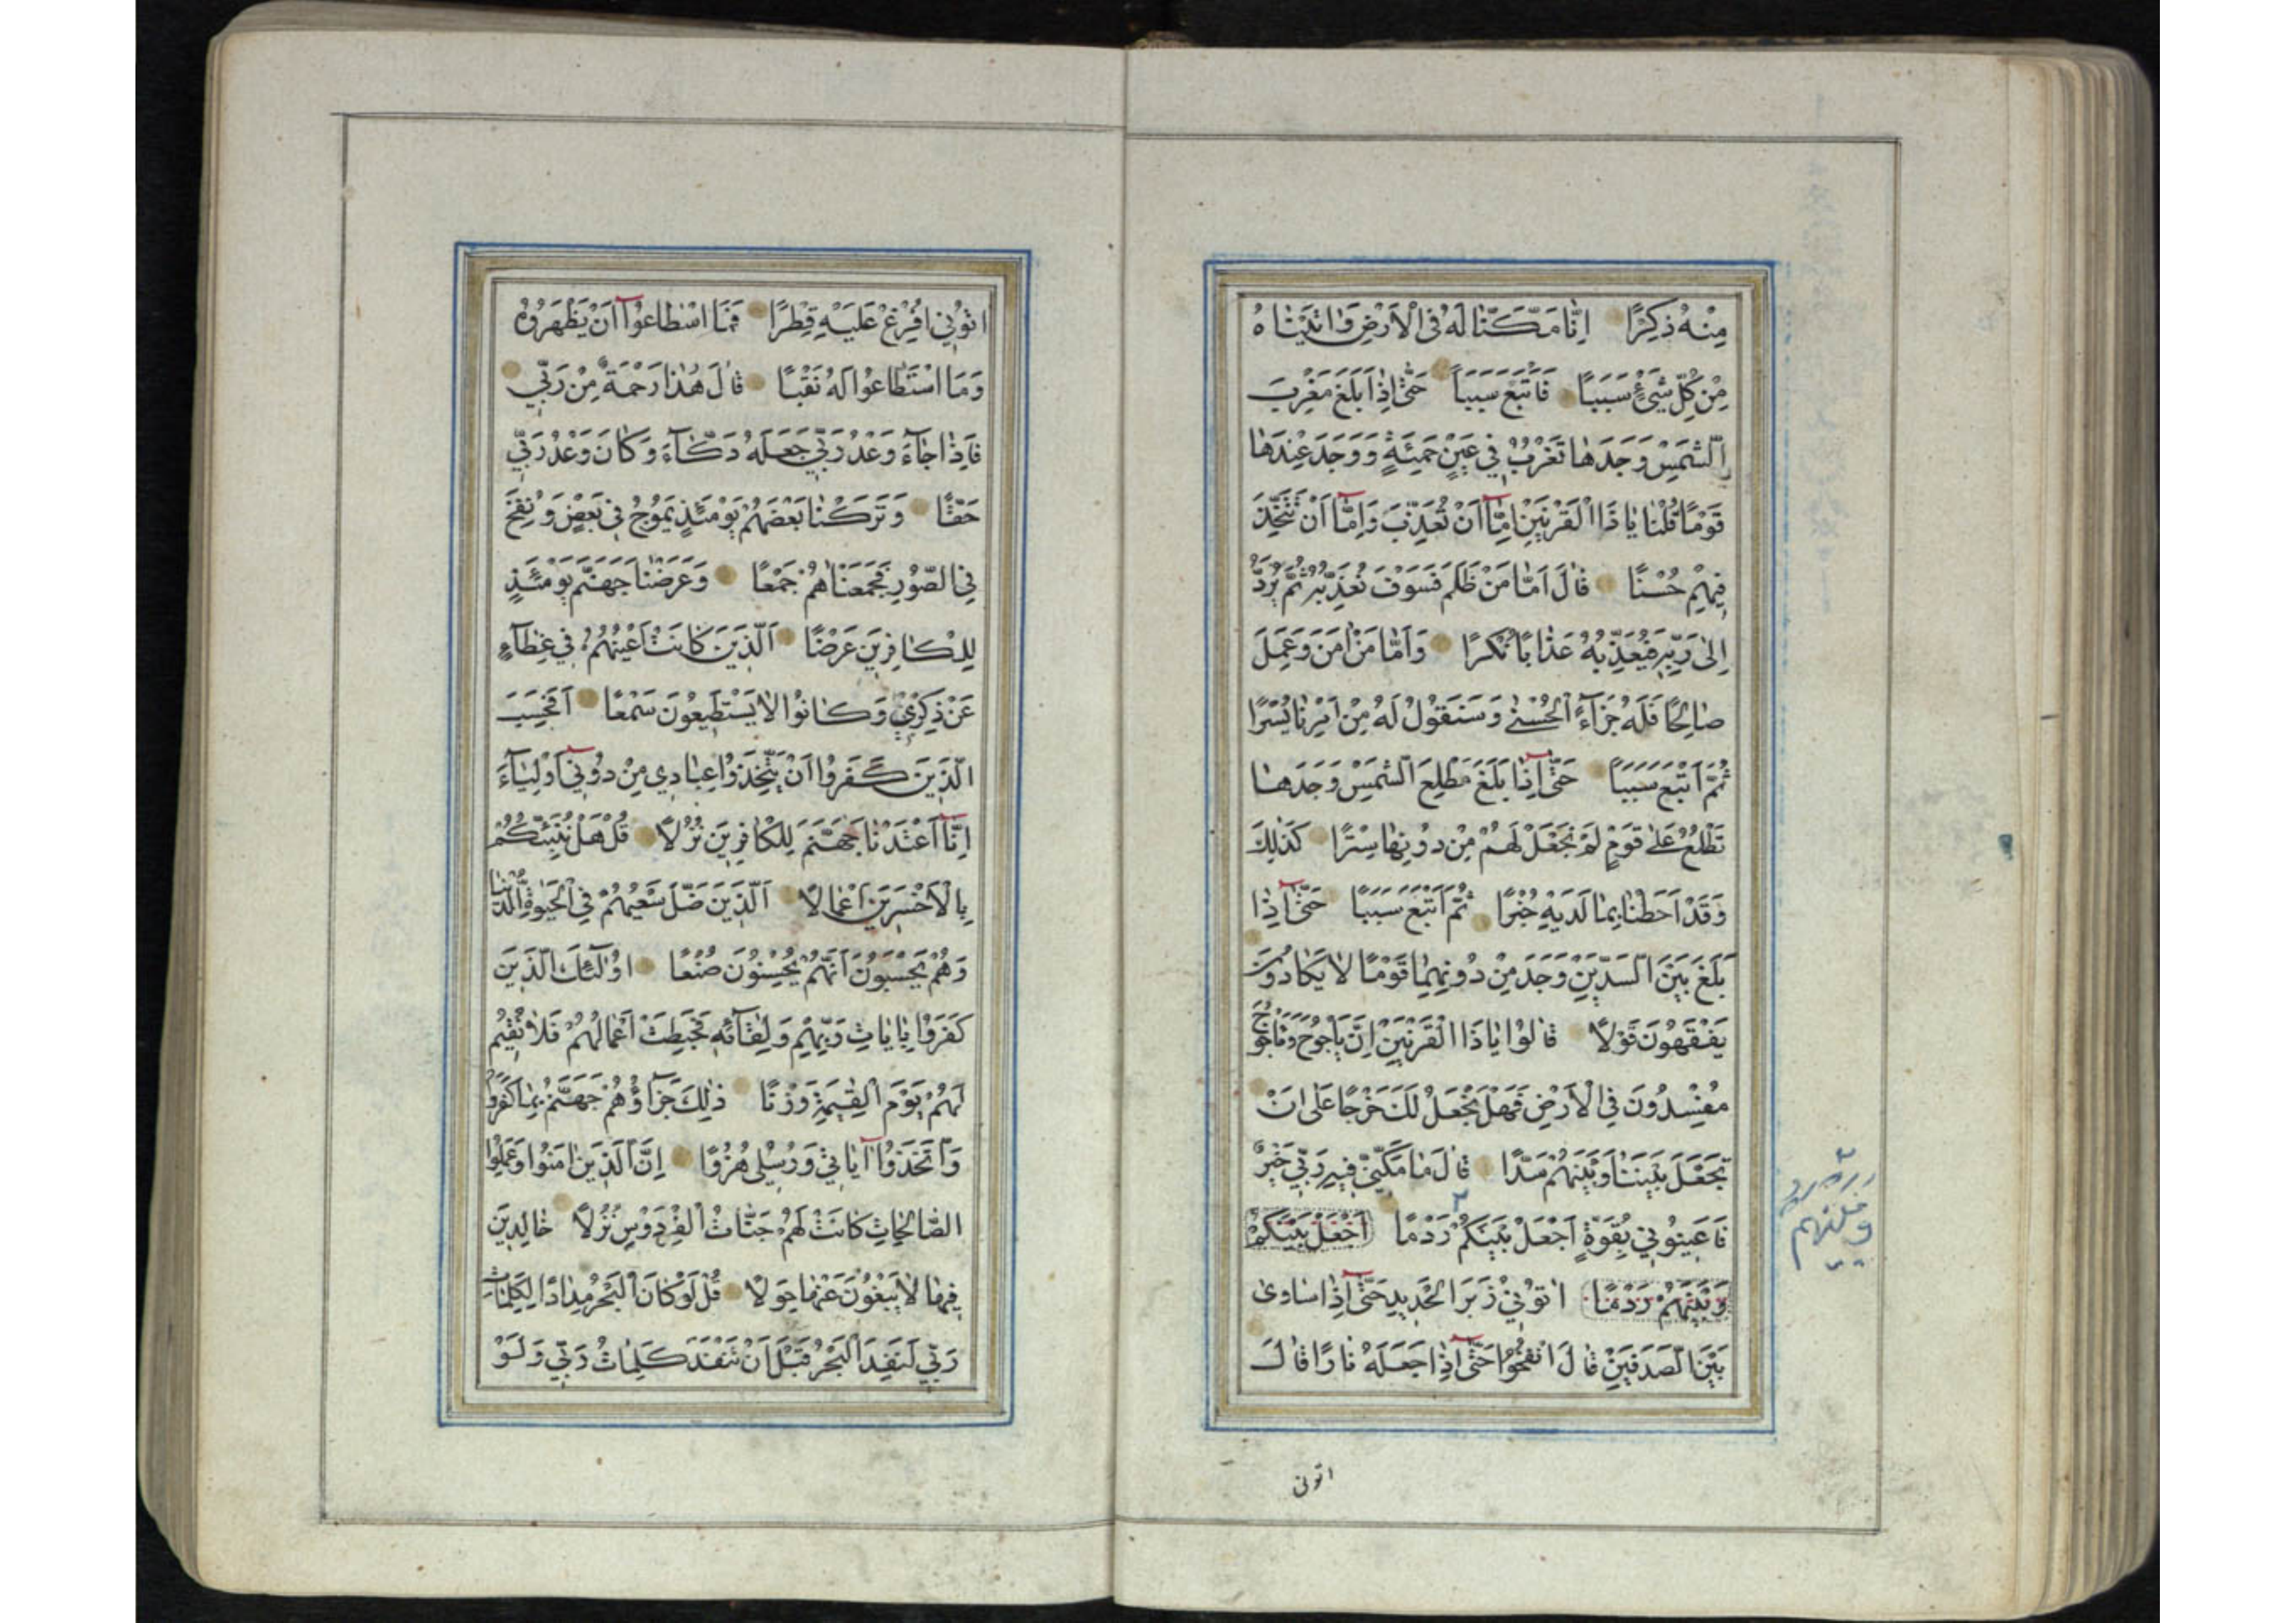 مِنْهُ ذِكْرًا اِنَّا مَكَّنَّا لَهُ فِي الْاَرْضِ وَاٰتَيْنَاهُ
مِنْ كُلِّ شَيْءٍ سَبَبًا فَاَتْبَعَ سَبَبًا حَتّٰى اِذَا بَلَغَ مَغْرِبَ
الشَّمْسِ وَجَدَهَا تَغْرُبُ فِي عَيْنٍ حَمِئَةٍ وَوَجَدَ عِنْدَهَا
قَوْمًا قُلْنَا يَا ذَا الْقَرْنَيْنِ اِمَّا اَنْ تُعَذِّبَ وَاِمَّا اَنْ تَتَّخِذَ
فِيهِمْ حُسْنًا قَالَ اَمَّا مَنْ ظَلَمَ فَسَوْفَ نُعَذِّبُهُ ثُمَّ يُرَدُّ
اِلٰى رَبِّهِ فَيُعَذِّبُهُ عَذَابًا نُكْرًا وَاَمَّا مَنْ اٰمَنَ وَعَمِلَ
صَالِحًا فَلَهُ جَزَآءً الْحُسْنٰى وَسَنَقُولُ لَهُ مِنْ اَمْرِنَا يُسْرًا
ثُمَّ اَتْبَعَ سَبَبًا حَتّٰى اِذَا بَلَغَ مَطْلِعَ الشَّمْسِ وَجَدَهَا
تَطْلُعُ عَلٰى قَوْمٍ لَمْ نَجْعَلْ لَهُمْ مِنْ دُونِهَا سِتْرًا كَذٰلِكَ
وَقَدْ اَحَطْنَا بِمَا لَدَيْهِ خُبْرًا ثُمَّ اَتْبَعَ سَبَبًا حَتّٰى اِذَا
بَلَغَ بَيْنَ السَّدَّيْنِ وَجَدَ مِنْ دُونِهِمَا قَوْمًا لَا يَكَادُونَ
يَفْقَهُونَ قَوْلًا قَالُوا يَا ذَا الْقَرْنَيْنِ اِنَّ يَاْجُوجَ وَمَاْجُوجَ
مُفْسِدُونَ فِي الْاَرْضِ فَهَلْ نَجْعَلُ لَكَ خَرْجًا عَلٰى اَنْ
تَجْعَلَ بَيْنَنَا وَبَيْنَهُمْ سَدًّا قَالَ مَا مَكَّنِّي فِيهِ رَبِّي خَيْرٌ
فَاَعِينُونِي بِقُوَّةٍ اَجْعَلْ بَيْنَكُمْ رَدْمًا اَجْعَلْ بَيْنَكُمْ
وَبَيْنَهُمْ رَدْمًا اٰتُونِي زُبَرَ الْحَدِيدِ حَتّٰى اِذَا سَاوٰى
بَيْنَ الصَّدَفَيْنِ قَالَ انْفُخُوا حَتّٰى اِذَا جَعَلَهُ نَارًا قَالَ
اتونى
اٰتُونِي اُفْرِغْ عَلَيْهِ قِطْرًا فَمَا اسْطَاعُوا اَنْ يَظْهَرُوهُ
وَمَا اسْتَطَاعُوا لَهُ نَقْبًا قَالَ هٰذَا رَحْمَةٌ مِنْ رَبِّي
فَاِذَا جَآءَ وَعْدُ رَبِّي جَعَلَهُ دَكَّآءَ وَكَانَ وَعْدُ رَبِّي
حَقًّا وَتَرَكْنَا بَعْضَهُمْ يَوْمَئِذٍ يَمُوجُ فِي بَعْضٍ وَنُفِخَ
فِي الصُّورِ فَجَمَعْنَاهُمْ جَمْعًا وَعَرَضْنَا جَهَنَّمَ يَوْمَئِذٍ
لِلْكَافِرِينَ عَرْضًا اَلَّذِينَ كَانَتْ اَعْيُنُهُمْ فِي غِطَآءٍ
عَنْ ذِكْرِي وَكَانُوا لَا يَسْتَطِيعُونَ سَمْعًا اَفَحَسِبَ
الَّذِينَ كَفَرُوا اَنْ يَتَّخِذُوا عِبَادِي مِنْ دُونِي اَوْلِيَآءَ
اِنَّا اَعْتَدْنَا جَهَنَّمَ لِلْكَافِرِينَ نُزُلًا قُلْ هَلْ نُنَبِّئُكُمْ
بِالْاَخْسَرِينَ اَعْمَالًا اَلَّذِينَ ضَلَّ سَعْيُهُمْ فِي الْحَيٰوةِ الدُّنْيَا
وَهُمْ يَحْسَبُونَ اَنَّهُمْ يُحْسِنُونَ صُنْعًا اُولٰٓئِكَ الَّذِينَ
كَفَرُوا بِاٰيَاتِ رَبِّهِمْ وَلِقَآئِهِ فَحَبِطَتْ اَعْمَالُهُمْ فَلَا نُقِيمُ
لَهُمْ يَوْمَ الْقِيٰمَةِ وَزْنًا ذٰلِكَ جَزَآؤُهُمْ جَهَنَّمُ بِمَا كَفَرُوا
وَاتَّخَذُوا اٰيَاتِي وَرُسُلِي هُزُوًا اِنَّ الَّذِينَ اٰمَنُوا وَعَمِلُوا
الصَّالِحَاتِ كَانَتْ لَهُمْ جَنَّاتُ الْفِرْدَوْسِ نُزُلًا خَالِدِينَ
فِيهَا لَا يَبْغُونَ عَنْهَا حِوَلًا قُلْ لَوْ كَانَ الْبَحْرُ مِدَادًا لِكَلِمَاتِ
رَبِّي لَنَفِدَ الْبَحْرُ قَبْلَ اَنْ تَنْفَدَ كَلِمَاتُ رَبِّي وَلَوْ